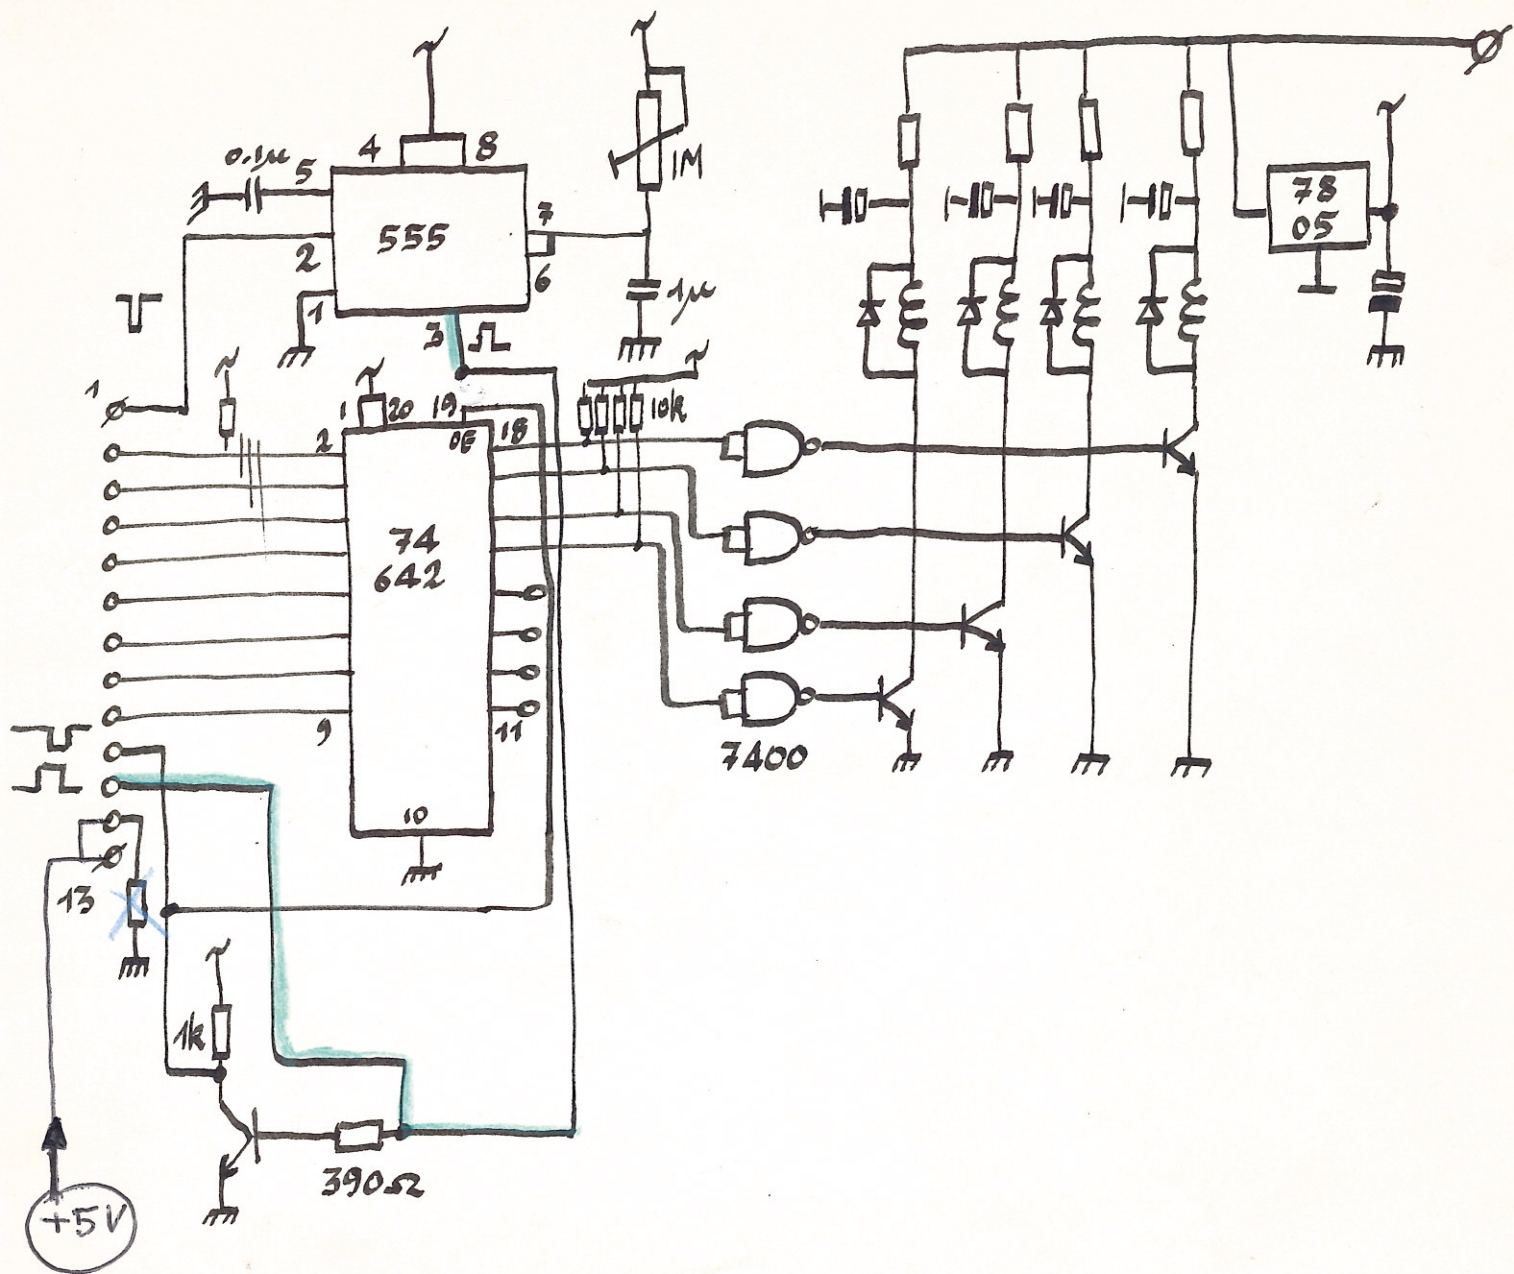 0.1µ
5
4
8
555
7
6
2
1
3
1M
1µ
78
05
1
1
20
19
OE
18
10k
2
74
642
9
11
10
7400
13
1k
390Ω
+5V